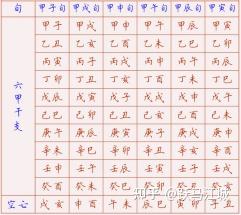 旬 甲子旬 甲戌旬 甲申旬 甲午旬 甲辰旬 甲寅旬
六甲干支
甲子 甲戌 甲申 甲午 甲辰 甲寅
乙丑 乙亥 乙酉 乙未 乙巳 乙卯
丙寅 丙子 丙戌 丙申 丙午 丙辰
丁卯 丁丑 丁亥 丁酉 丁未 丁巳
戊辰 戊寅 戊子 戊戌 戊申 戊午
己巳 己卯 己丑 己亥 己酉 己未
庚午 庚辰 庚寅 庚子 庚戌 庚申
辛未 辛巳 辛卯 辛丑 辛亥 辛酉
壬申 壬午 壬辰
癸酉 癸未 癸巳 癸卯 癸丑 癸亥
空亡 戌亥 申酉 午未 辰巳 寅卯 子丑
知乎